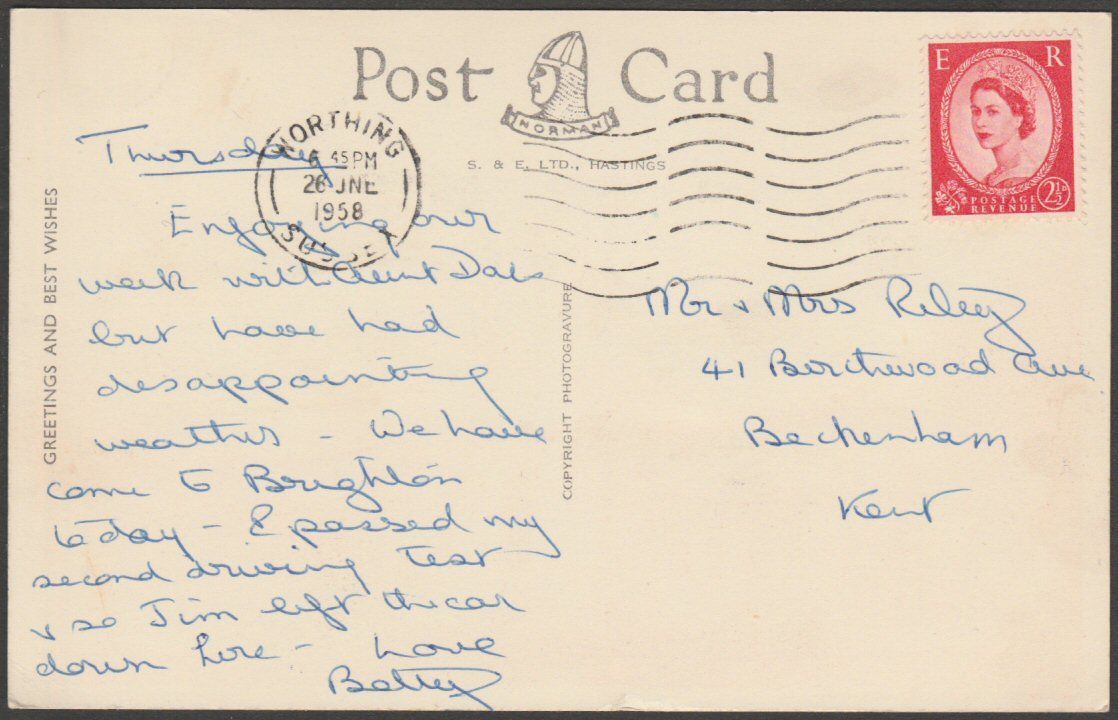 Post Card
NORMAN
S. & E. LTD., HASTINGS
WORTHING
6 45 PM
26 JNE
1958
SUSSEX
E R
POSTAGE
REVENUE
2½D
GREETINGS AND BEST WISHES
COPYRIGHT PHOTOGRAVURE
Thursday
Enjoying our
week with Aunt
but have had
disappointing
weather - We have
come to Brighton
today - I passed my
second driving Test
& so Jim left the car
down here - Love
Betty
Mr & Mrs Riley
41 Birchwood Ave
Beckenham
Kent